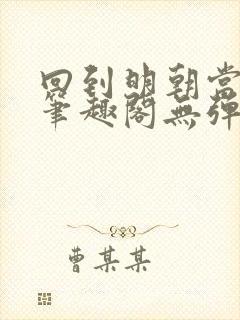 回到明朝当
筆趣閣無彈
曹某某